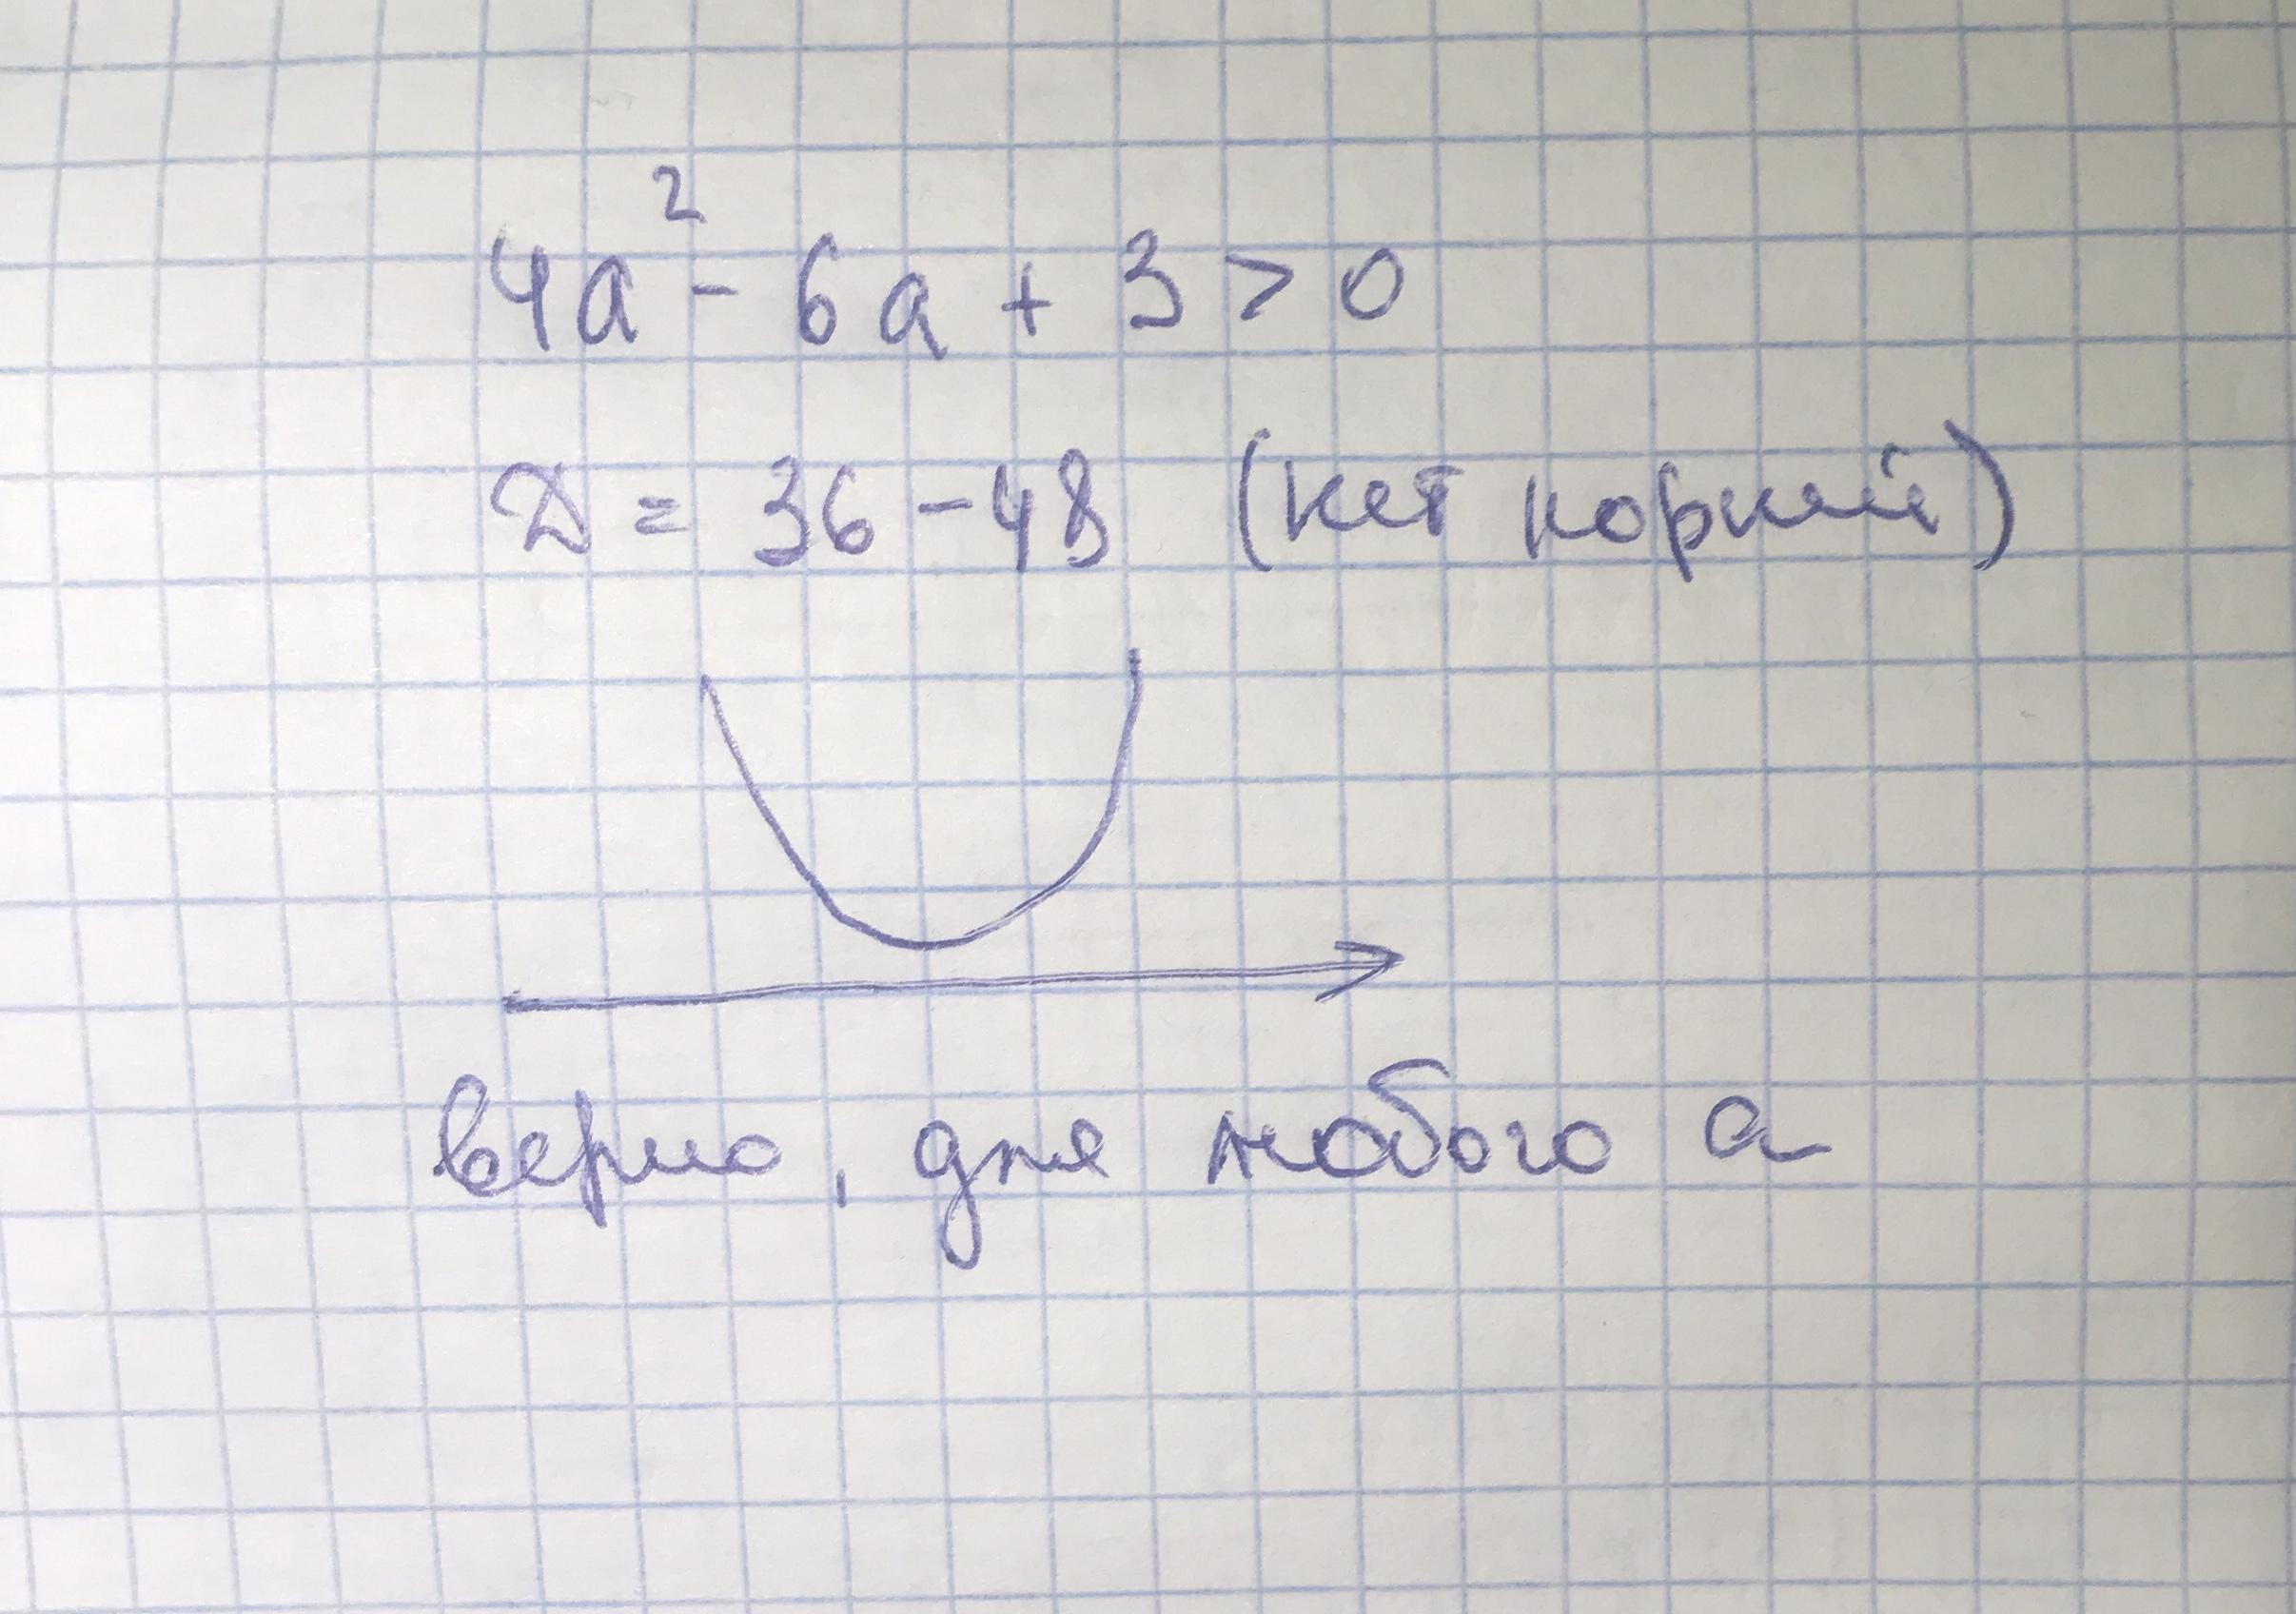 4a² - 6a + 3 > 0
D = 36 - 48 (нет корней)
верно, для любого a